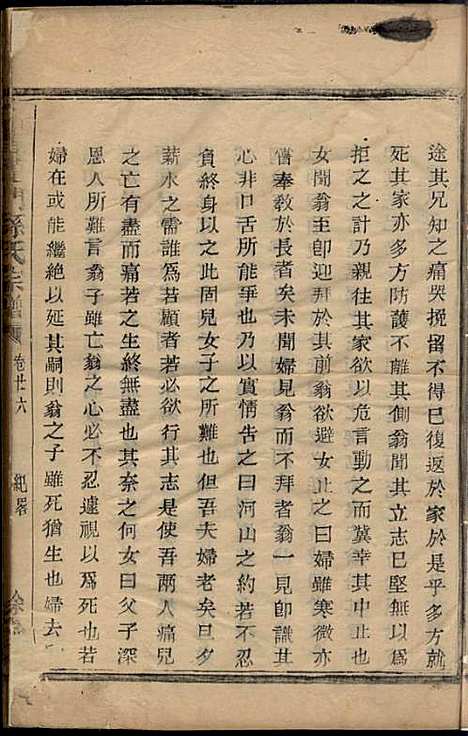 途其兄知之痛哭挽留不得已復返於家於是乎多方就
死其家亦多方防護不離其側翁聞其立志已堅無以爲
拒之之計乃親往其家欲以危言動之而冀幸其中止也
女聞翁至即迎拜於其前翁欲避女止之曰婦雖寒微亦
嘗奉教於長者矣未聞婦見翁而不拜者翁一見即識其
心非口舌所能爭也乃以實情告之曰河山之約若不忍
負終身以之此固兒女子之所難也但吾夫婦老矣旦夕
薪水之需誰爲若顧者若必欲行其志是使吾兩人痛兒
之亡有盡而痛若之生終無盡也其奈之何女曰父子深
恩人所難言翁子雖亡翁之心必不忍遽視以爲死也若
婦在或能繼絶以延其嗣則翁之子雖死猶生也婦去
門孫氏宗譜 卷廿六 紀畧